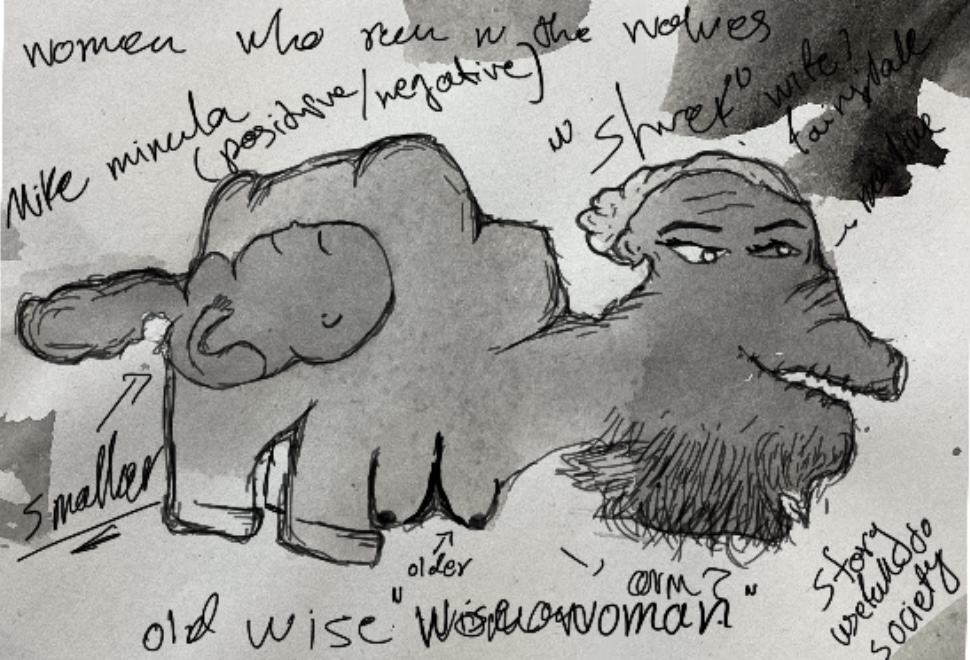 women who run w the wolves
Mike mincula
(positive/negative)
"Shrek" wife?
fairytale
smaller
older
arm?
old wise "woman"
story
useful to
society